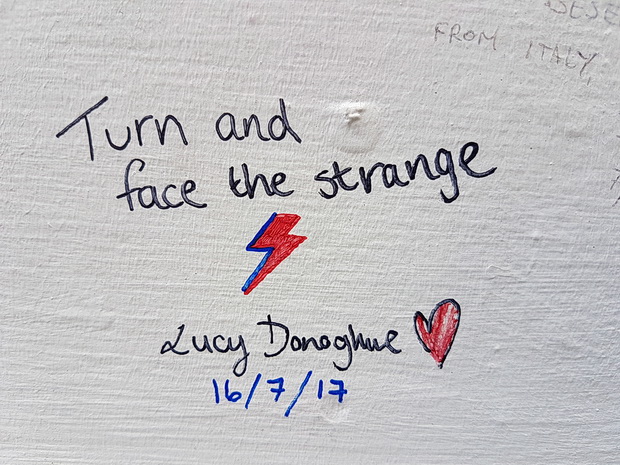 FROM ITALY,
Turn and
face the strange
Lucy Donoghue
16/7/17